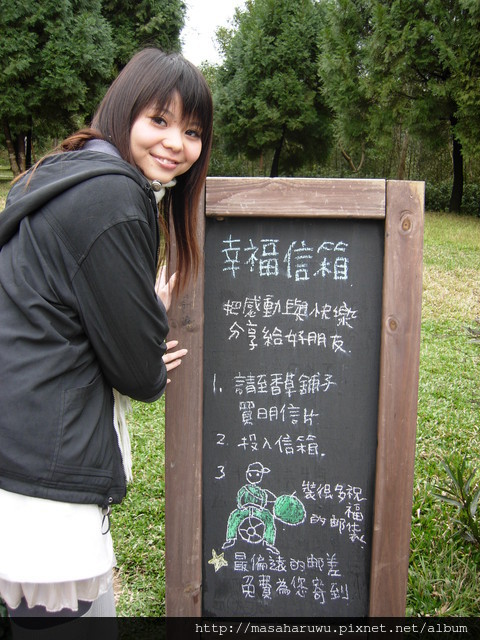 幸福信箱
把感動與快樂
分享給好朋友.
1. 請至香草舖子
買明信片
2. 投入信箱.
3
裝很多祝
福
的郵差.
最偏遠的郵差
免費為您寄到
http://masaharuwu.pixnet.net/album